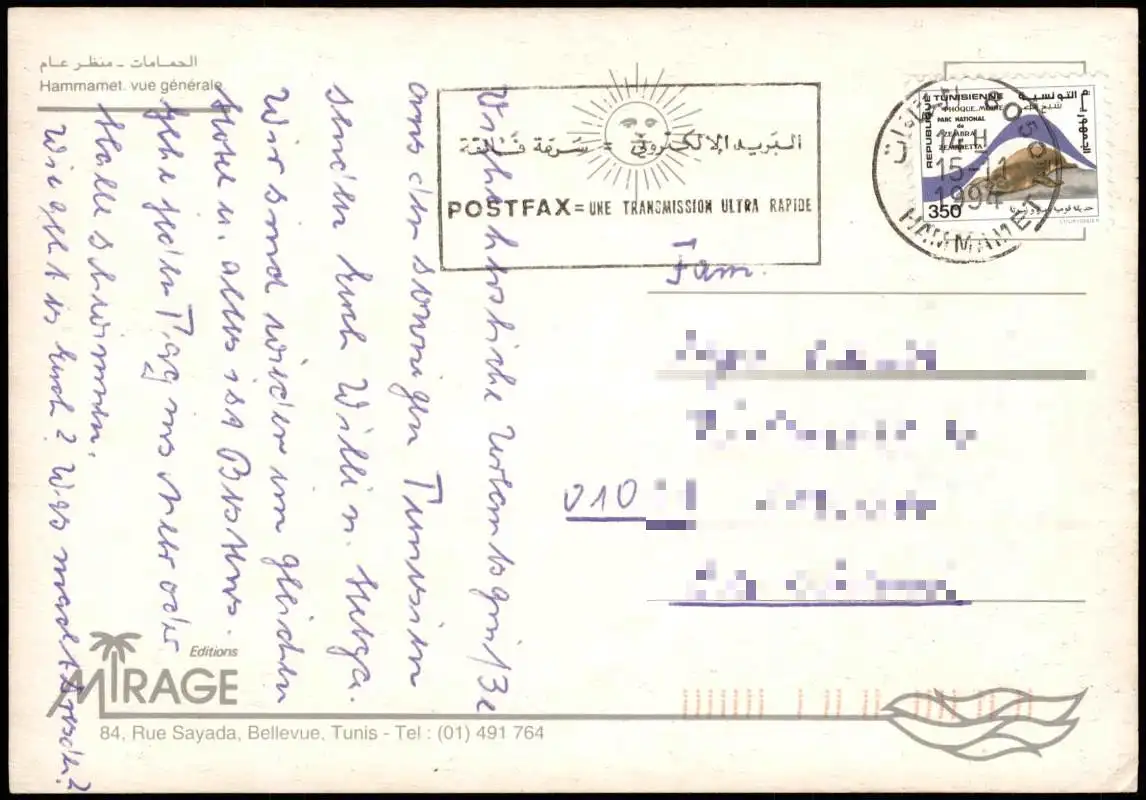 الحمامات - منظر عام
Hammamet. vue générale
Viel herzliche Urlaubsgrüße
aus dem sonnigen Tunesien
senden Euch Willi u. Helga.
Wir sind wieder im gleichen
Hotel u. alles ist Bestens.
Gehe jeden Tag ins Meer oder
Halle schwimmen.
Wie geht es Euch? Was macht
البريد الإلكتروني = سرعة فائقة
POSTFAX = UNE TRANSMISSION ULTRA RAPIDE
REPUBLIQUE TUNISIENNE
التونسية
PHOQUE MOINE
PARC NATIONAL
de
ZEMBRA
ZEMBRETTA
350
14H
15-11
1994
HAMMAMET
Fam.
010
Editions
MIRAGE
84, Rue Sayada, Bellevue, Tunis - Tel : (01) 491 764